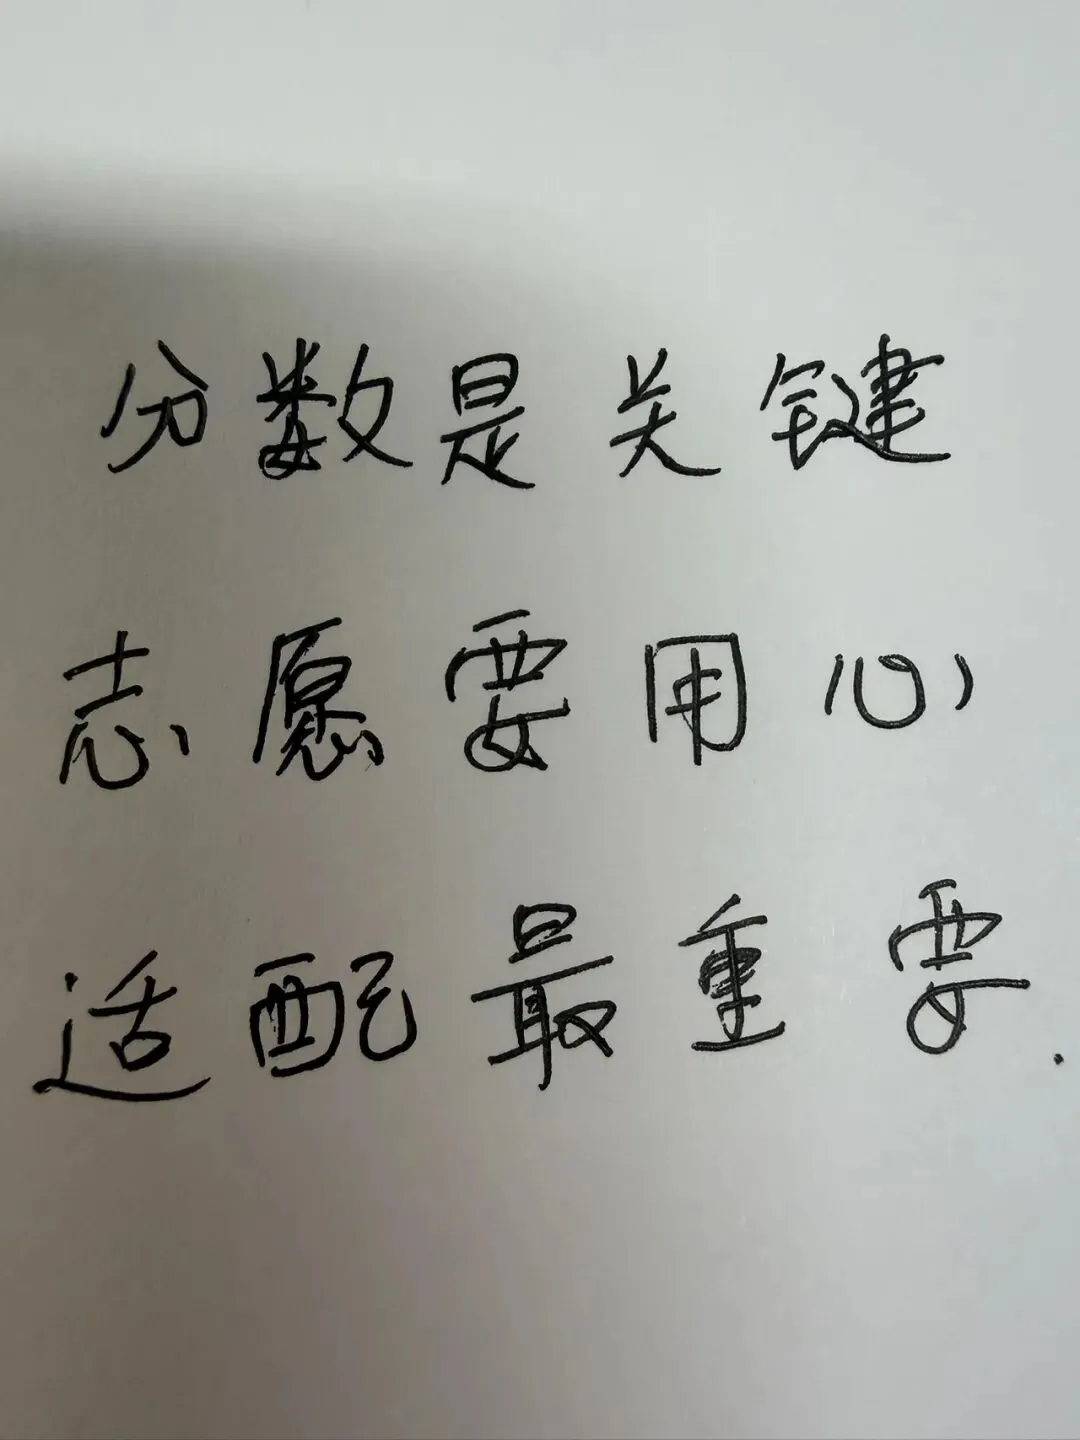 分数是关键
志愿要用心
适配最重要.